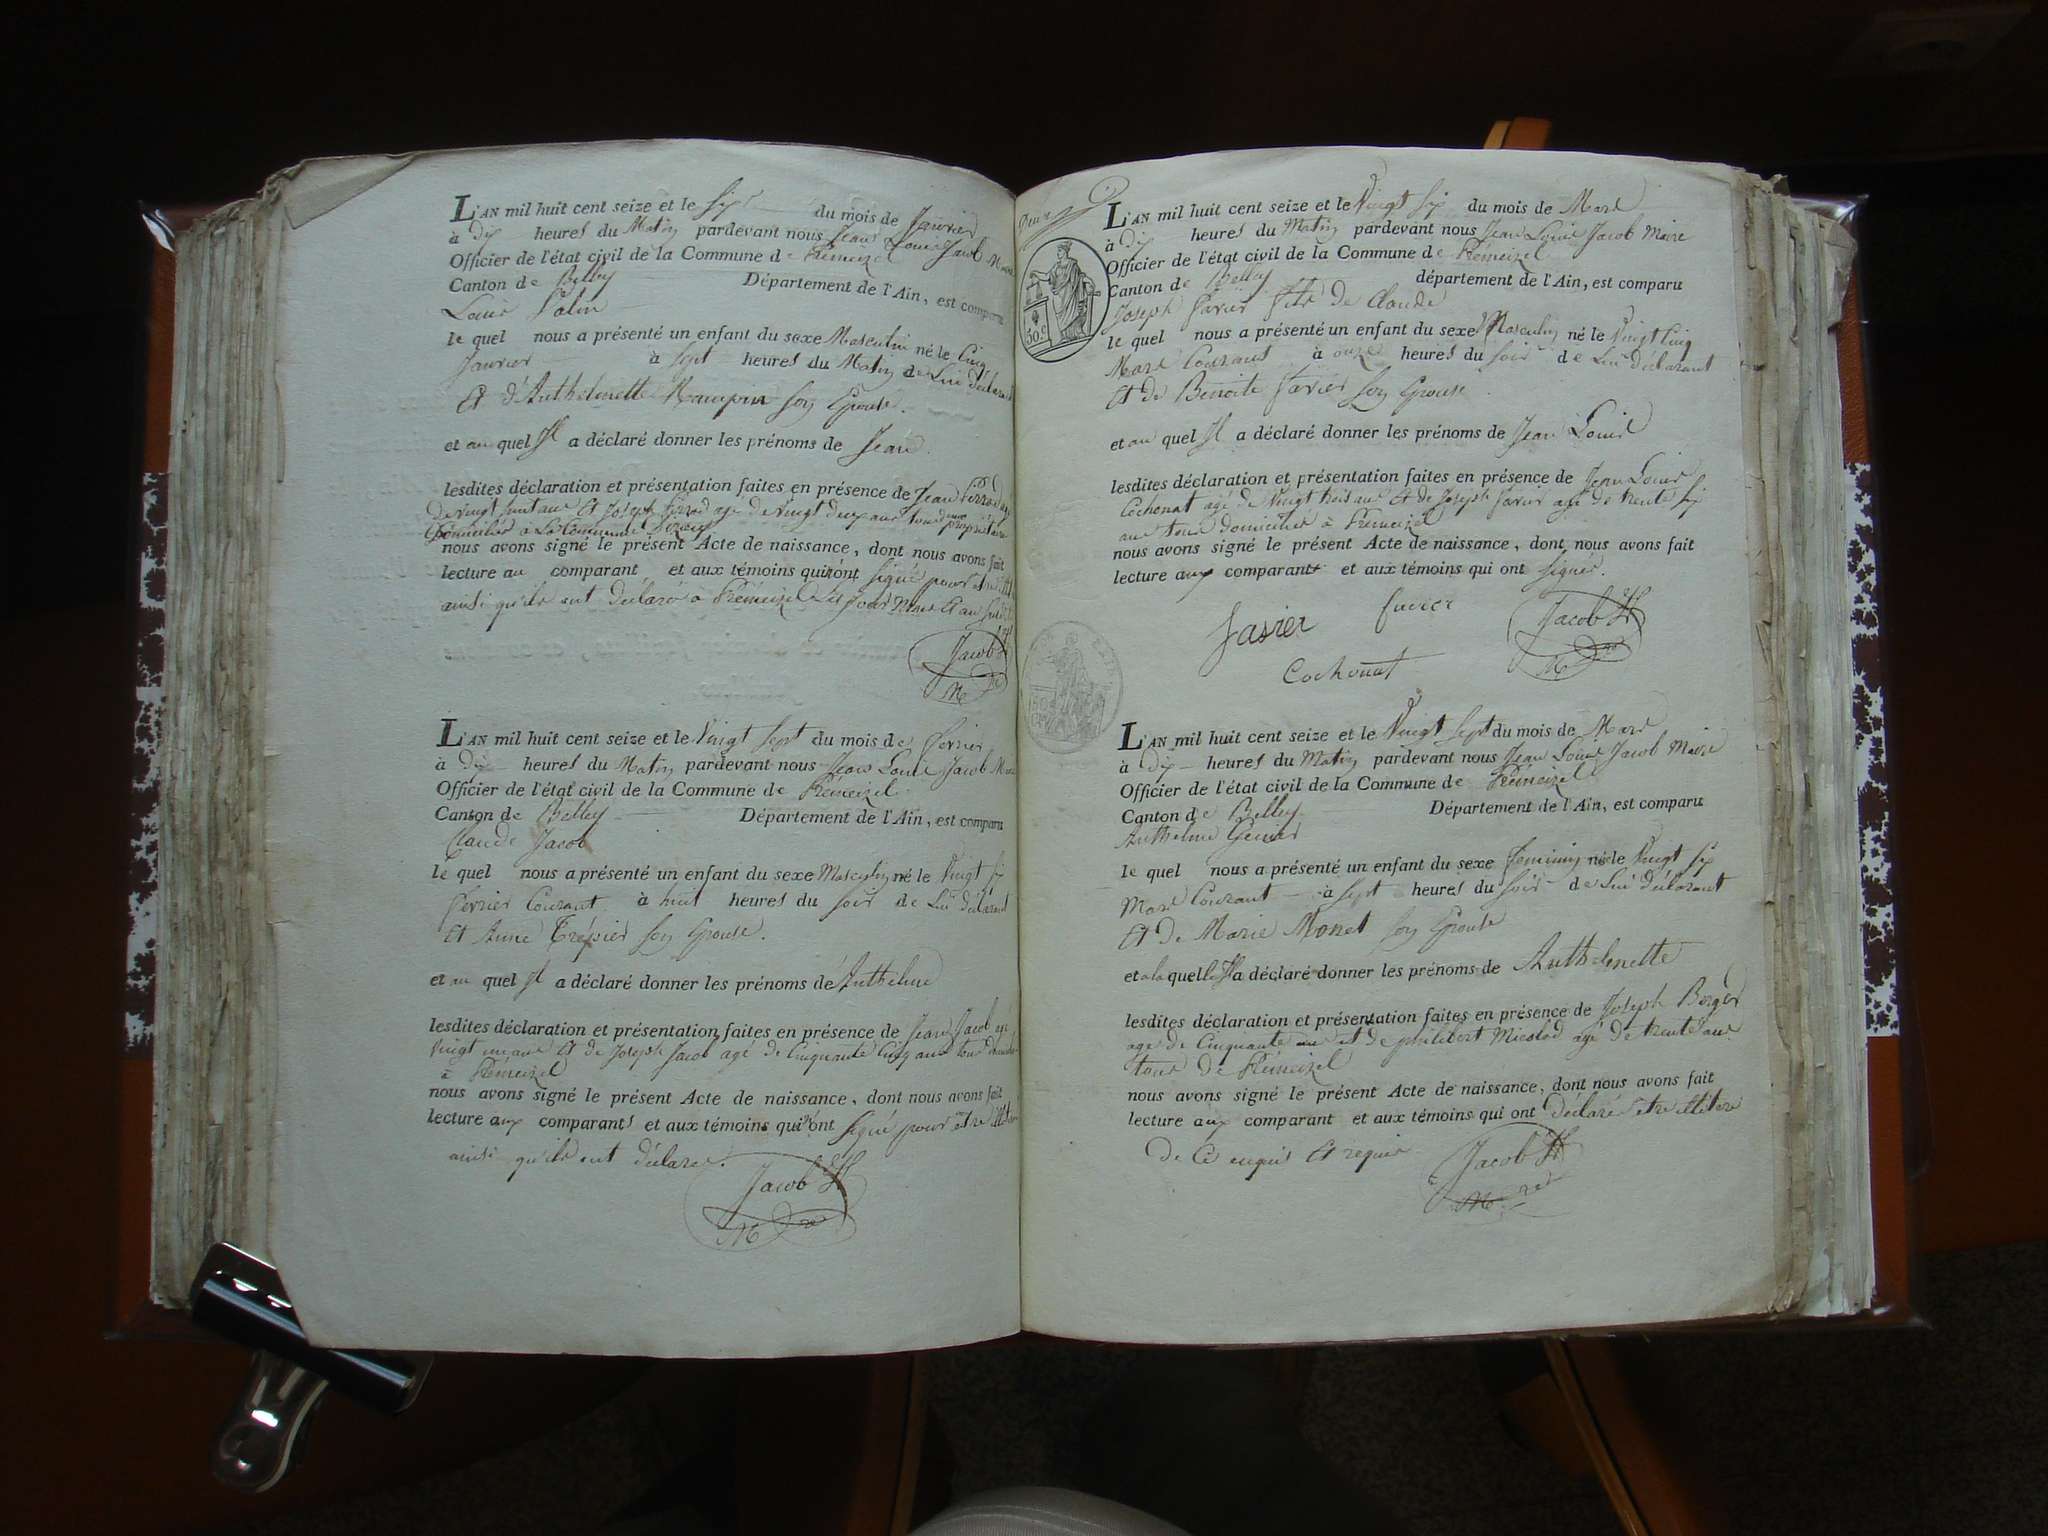 L'AN mil huit cent seize et le sept du mois de Janvier
à dix heures du Matin pardevant nous Jean Louis Jacob Maire
Officier de l'état civil de la Commune de Prémeizel
Canton de Belley Département de l'Ain, est comparu
Louis
le quel nous a présenté un enfant du sexe Masculin né le Cinq
Janvier à sept heures du Matin de Lui déclarant
Et d'Anthelmette son Epouse.
et au quel Il a déclaré donner les prénoms de Jean.
lesdites déclaration et présentation faites en présence de Jean
de vingt huit ans Et Joseph agé de vingt deux ans tous deux propriétaires
Domiciliés à La Commune
nous avons signé le présent Acte de naissance, dont nous avons fait
lecture au comparant et aux témoins qui n'ont signé pour être
ainsi qu'ils ont déclaré à Prémeizel Les jour Mois Et an susdits
Jacob
M
L'AN mil huit cent seize et le Vingt sept du mois de fevrier
à Dix heures du Matin pardevant nous Jean Louis Jacob Maire
Officier de l'état civil de la Commune de Prémeizel
Canton de Belley Département de l'Ain, est comparu
Claude Jacob
le quel nous a présenté un enfant du sexe Masculin né le Vingt six
fevrier Courant à huit heures du soir de Lui déclarant
Et Anne Trépier son Epouse.
et au quel Il a déclaré donner les prénoms de Anthelme
lesdites déclaration et présentation faites en présence de Jean Jacob agé
vingt un ans Et de Joseph Jacob agé de Cinquante Cinq ans tous
à Prémeizel
nous avons signé le présent Acte de naissance, dont nous avons fait
lecture aux comparants et aux témoins qui n'ont signé pour être
ainsi qu'ils ont déclaré.
Jacob
M re
50 c.
L'AN mil huit cent seize et le Vingt six du mois de Mars
à dix heures du Matin pardevant nous Jean Louis Jacob Maire
Officier de l'état civil de la Commune de Prémeizel
Canton de Belley département de l'Ain, est comparu
Joseph favier fils de Claude
le quel nous a présenté un enfant du sexe Masculin né le Vingt Cinq
Mars Courant à onze heures du soir de Lui déclarant
Et de Benoite favier son Epouse
et au quel Il a déclaré donner les prénoms de Jean Louis
lesdites déclaration et présentation faites en présence de Jean Louis
Cochonat agé de Vingt trois ans Et de Joseph favier agé de trente six
ans tous domiciliés à Prémeizel
nous avons signé le présent Acte de naissance, dont nous avons fait
lecture aux comparant et aux témoins qui ont signés.
favier favier Jacob
Cochonat M re
L'AN mil huit cent seize et le Vingt sept du mois de Mars
à dix heures du Matin pardevant nous Jean Louis Jacob Maire
Officier de l'état civil de la Commune de Prémeizel
Canton de Belley Département de l'Ain, est comparu
Anthelme
le quel nous a présenté un enfant du sexe feminin née le Vingt six
Mars Courant à sept heures du soir de Lui déclarant
Et de Marie Monet son Epouse
et a la quelle Il a déclaré donner les prénoms de Anthelmette
lesdites déclaration et présentation faites en présence de Joseph Berger
agé de Cinquante ans et de philibert Miolod agé de trente ans
tous de Prémeizel
nous avons signé le présent Acte de naissance, dont nous avons fait
lecture aux comparant et aux témoins qui ont déclarés être
de Ce enquis Et requis
Jacob
M re